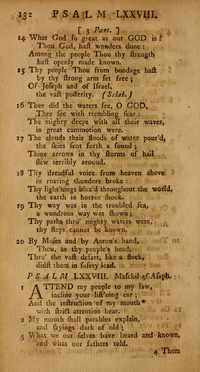 132 PSALM LXXVIII.
[3 Part.]
14 What God so great as our GOD is?
Thou God, hast wonders done:
Among the people Thou thy strength
hast openly made known.
15 Thy people Thou from bondage hast
by thy strong arm set free;
Of Joseph and of Israel,
the vast posterity. (Selah.)
16 Thee did the waters see, O GOD,
Thee see with trembling fear:
The mighty deeps with all their waves,
in great commotion were.
17 The clouds their floods of water pour'd,
the skies sent forth a sound;
Thine arrows in thy storms of hail
flew terribly around.
18 Thy dreadful voice from heaven above
in roaring thunders broke:
Thy light'nings throughout the world,
the earth in horror shook.
19 Thy way was in the troubled sea,
a wondrous way was shown;
Thy paths thro' mighty waters were,
thy steps cannot be known.
20 By Moses and by Aaron's hand,
Thou, in thy people's bands,
Thro' the vast desart, like a flock,
didst them in safety lead.
PSALM LXXVIII. Maschil of Asaph.
1 ATTEND my people to my law,
incline your list'ning ear;
And the instruction of my mouth
with strict attention hear.
2 My mouth shall parables explain,
and sayings dark of old;
3 What we our selves have heard and known,
and what our fathers told.
4 Them